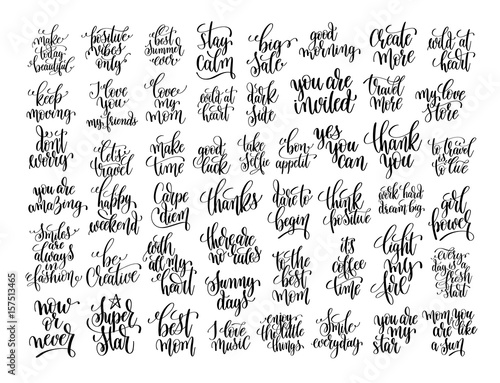 make
today
beautiful
positive
vibes
only
best
summer
ever
stay
calm
big
sale
good
morning
create
more
wild at
heart
keep
moving
I love
you
my friends
love
my mom
wild at
heart
dark
side
you are
invited
travel
more
my love
store
don't
worry
let's
travel
make
time
good
luck
take
selfie
bon
appetit
yes
you
can
thank
you
to travel
is to
live
you are
amazing
happy
weekend
Carpe
diem
thanks
dare to
begin
think
positive
work hard
dream big
girl
power
Smiles
are
always
in
fashion
be
Creative
with
all my
heart
there are
no rules
to the
best
mom
it's
coffee
time
light
my
fire
every
day is a
fresh
start
now
or
never
Super
Star
best
mom
Sunny
days
I love
music
enjoy
the little
things
Smile
everyday
you are
my
star
mom, you
are like
a sun
Adobe Stock | #157513465